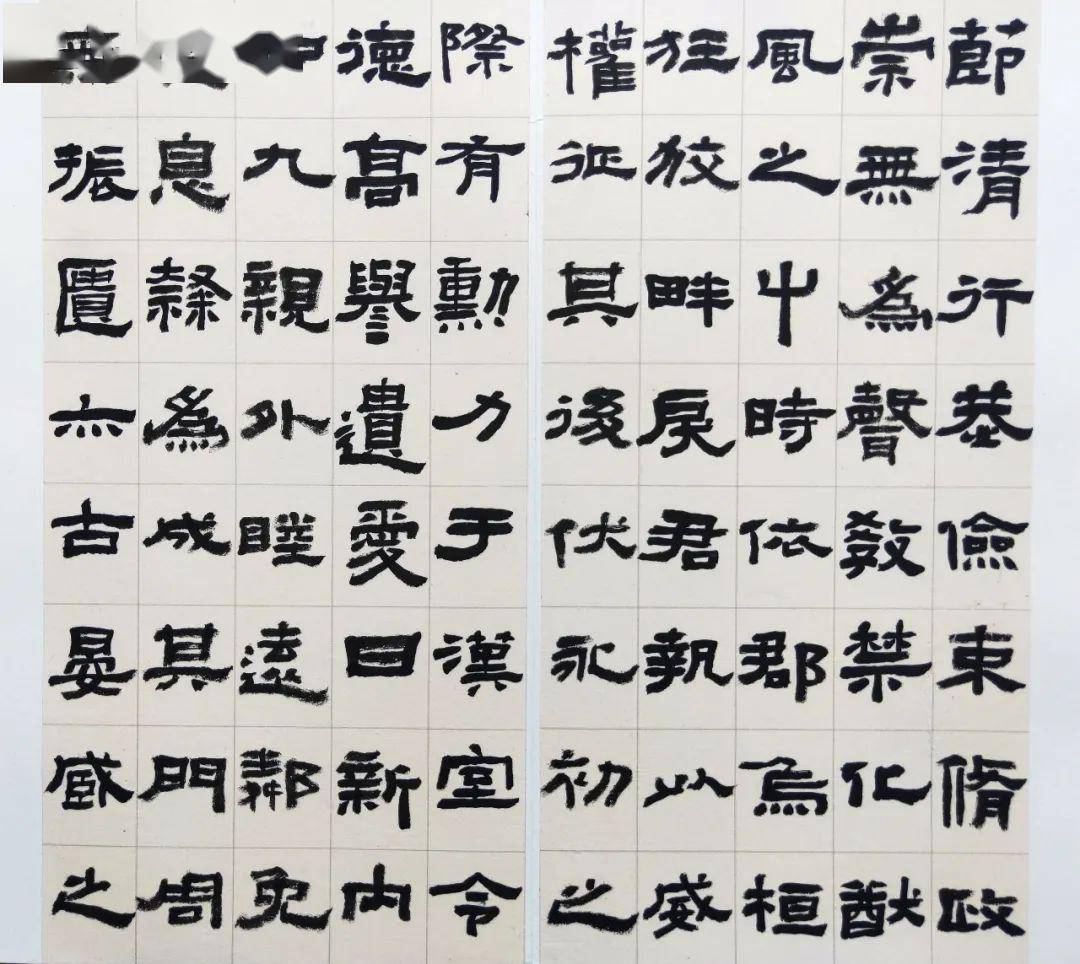 節清行恭儉束脩政
崇無為聲教禁化猷
風之中時依郡烏桓
狂狡畔戾君執以威
權征其後伏永初之
際有勳力于漢室令
德高譽遺愛日新内
九親外睦遠鄰免
息隸為成其門周
無振匱亦古晏臧之